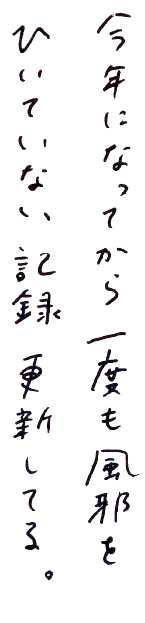 今年になってから一度も風邪を
ひいていない、記録更新してる。